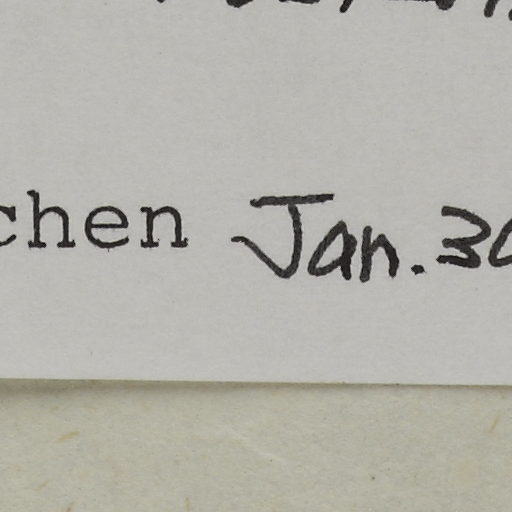 chen Jan. 30